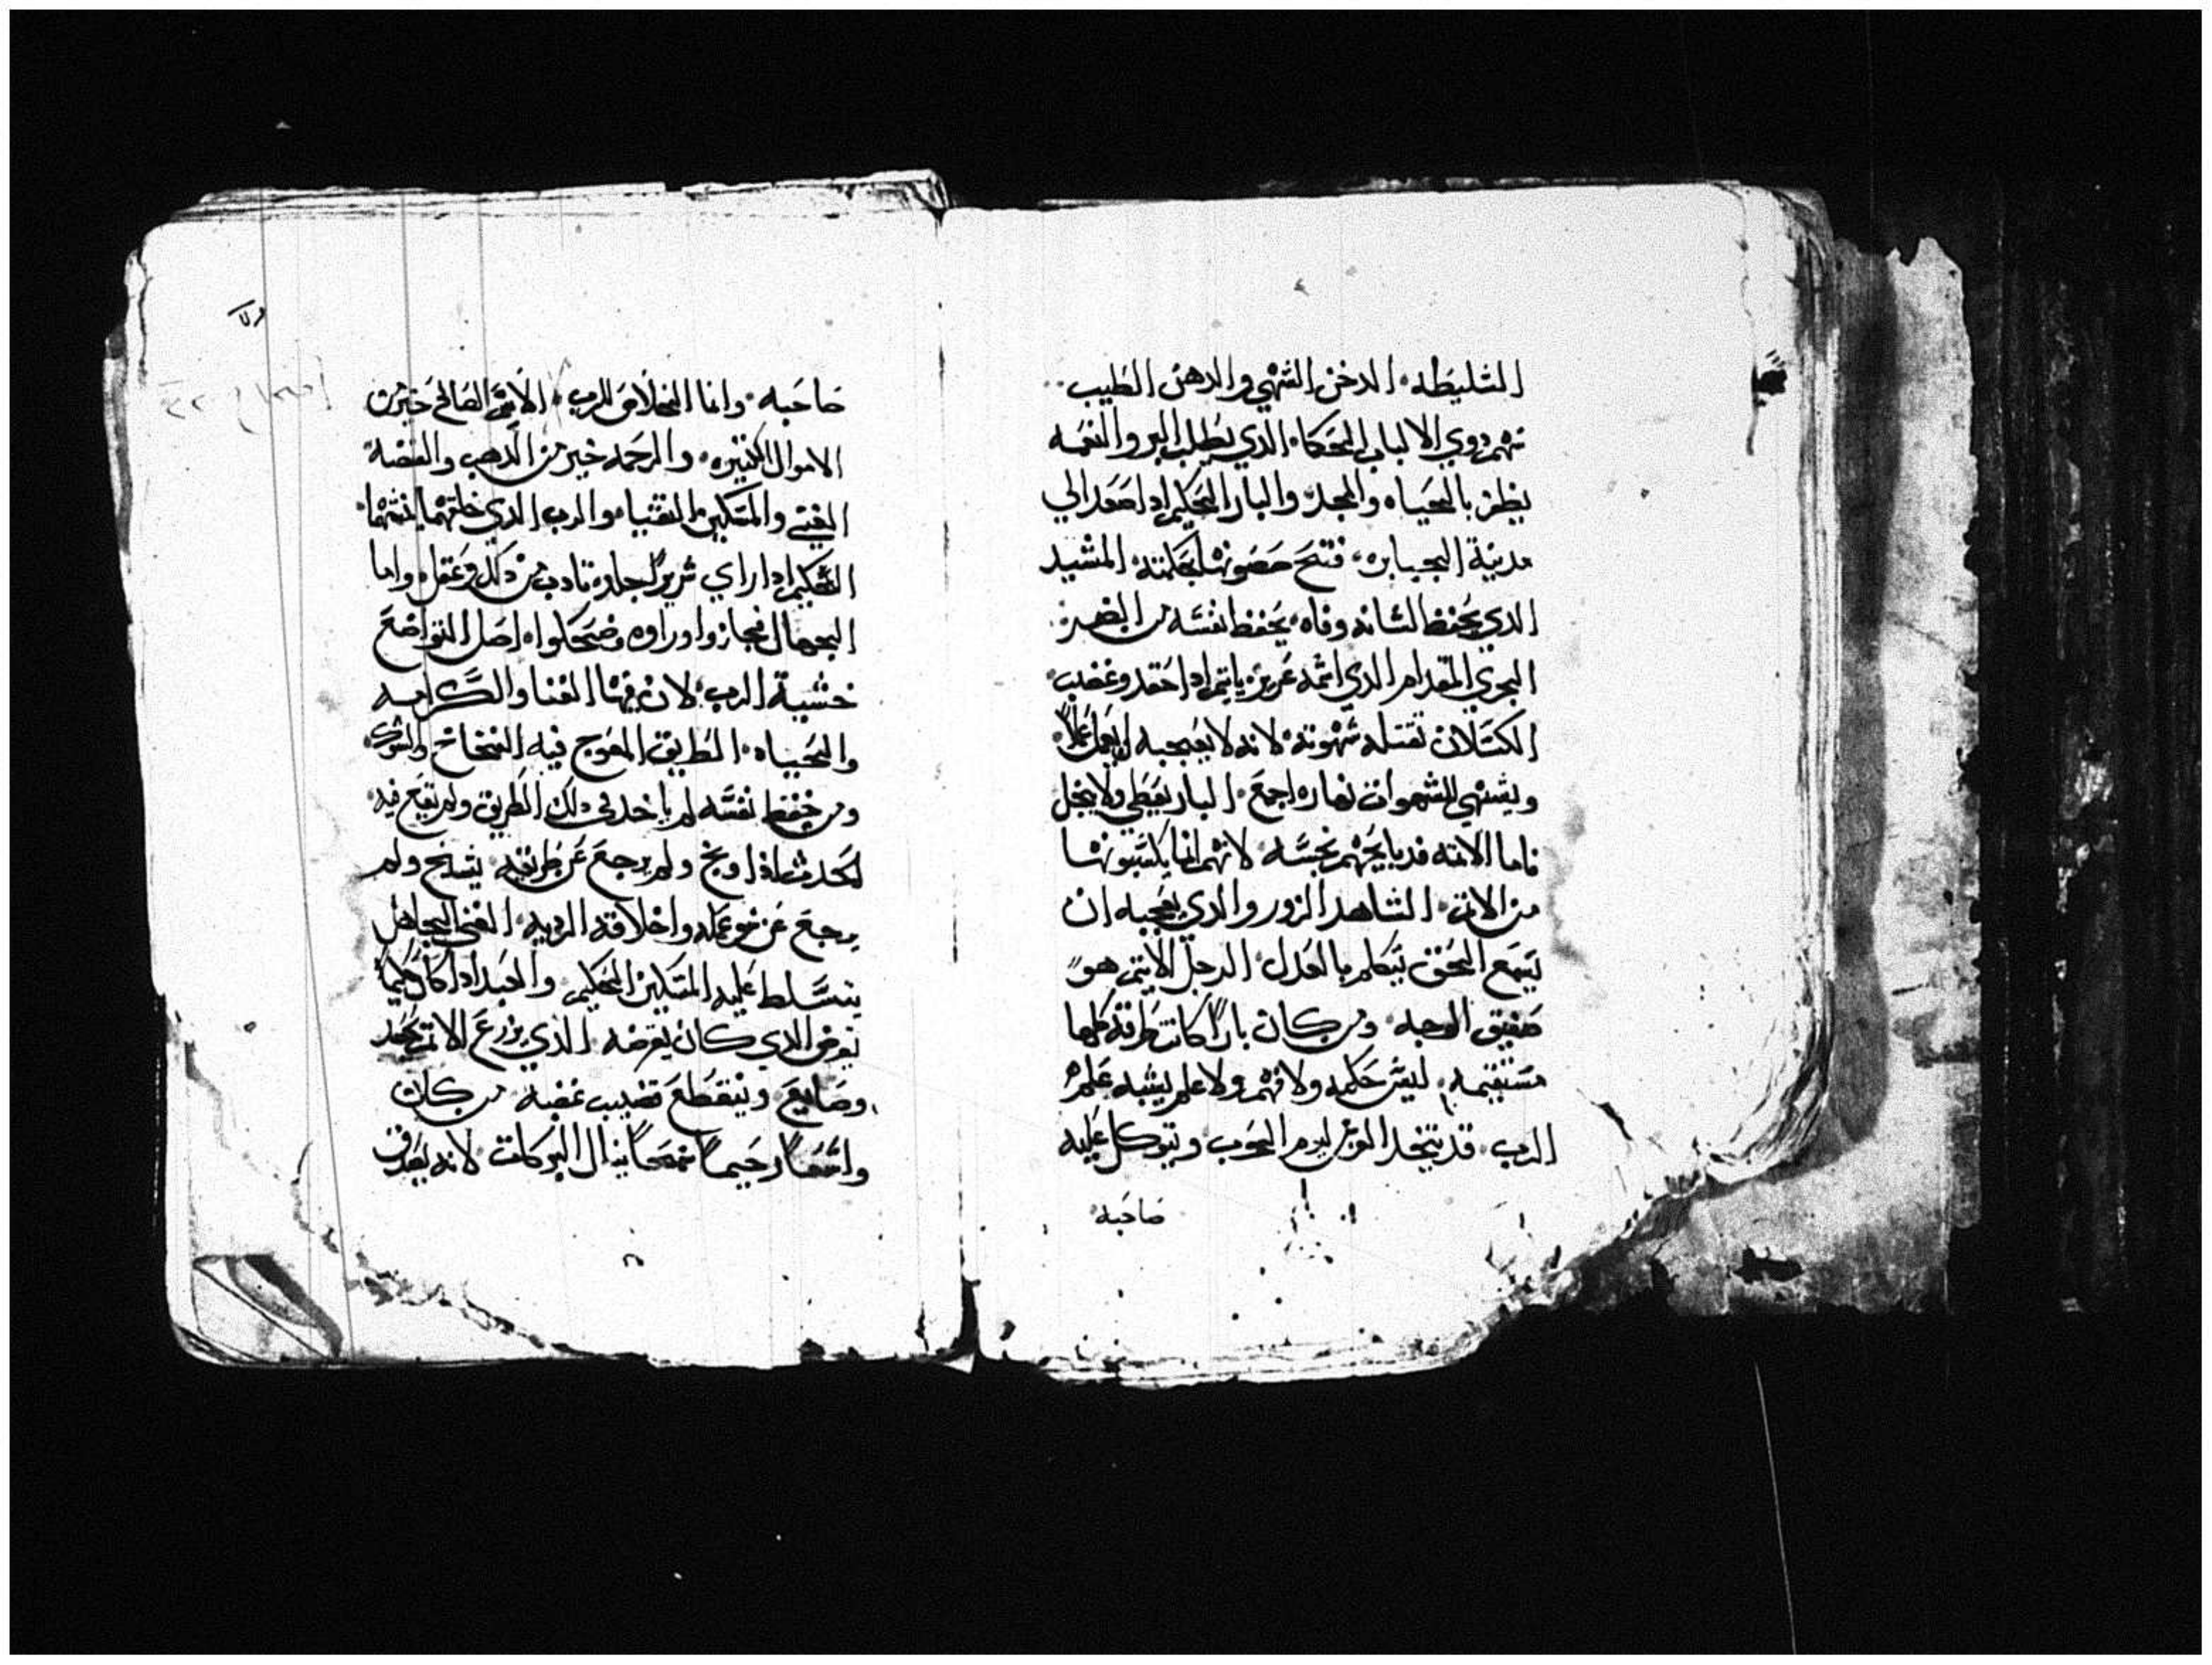 السليطه، الدخن الشهي والدهن الطيب
تهم دوي الالباب الحكما، الدي يطلب البر والنعمه
يظفر بالحياه والمجد، والبار الحكيم ادا صعد الي
مدينة الجبابره، فتح حصونها بحكمته، المشيد
الدي يحفظ لسانه وفاه، يحفظ نفسه من الضر
الجري المقدام الدي اسمه عزيز ياتم ادا حقد وغضب
الكسلان تقتله شهوته، لانه لا يعجبه ان يعمل عملاً
ويشتهي الشهوات نهاره اجمع، البار يعطي ولا يبخل
فاما الاتمه فدبايحهم نجسه، لانهم انما يكسبونها
من الاتم، الشاهد الزور والدي يعجبه ان
يسمع الحق يتكلم بالعدل، الرجل الاتيم هو
صفيق الوجه، ومن كان باراً كانت طرقه كلها
مستقيمه، ليس حكمه ولا فهم ولا علم يشبه علم
الرب، قد يتخد الفرس ليوم الحرب ويتوكل عليه
صاحبه
صاحبه، وانما الخلاص للرب، الاسم الصالح خير من
الاموال الكتيره، والرحمه خير من الدهب والفضة
الغني والمسكين التقيا، والرب الدي خلقهما نفسهما
الحكيم ادا راي شرير جلد، تادب من دلك وعقل، واما
الجهال فجازوا وراوه وضحكوا، اصل التواضع
خشية الرب، لان فيها الغنا والكرامه
والحياه، الطريق المعوج فيه الفخاخ والشرك
ومن حفظ نفسه لم ياخد في دلك الطريق ولم يقع فيه
الحدث اذا وبخ ولم يرجع عن طريقه، يشيخ ولم
يرجع عن سو عمله واخلاقه الرديه، الغني الجاهل
يتسلط عليه المسكين الحكيم، والعبد ادا كان حكيماً
يقرض الدي كان يقرضه، الذي يزرع الاتم يحصد
وصايع، وينقطع قضيب غضبه، من كان
واسعاً رحيماً سمحاً ينال البركات، لانه يصدق